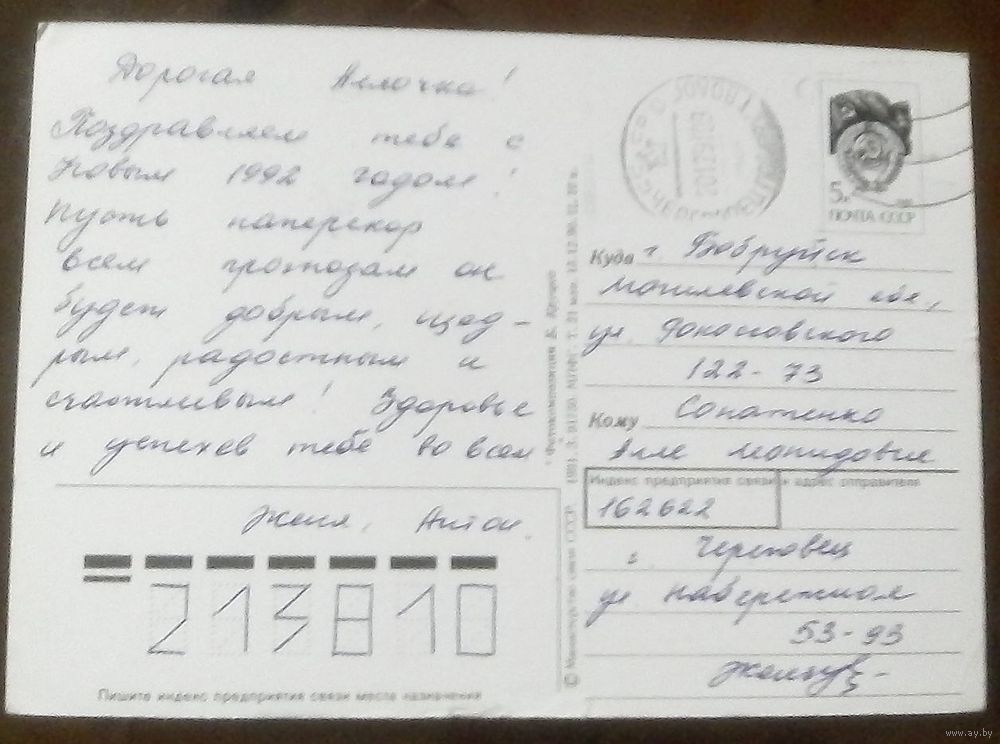 Дорогая Аллочка!
Поздравляем тебя с
Новым 1992 годом!
Пусть наперекор
всем прогнозам он
будет добрым, щед-
рым, радостным и
счастливым! Здоровье
и успехов тебе во всем
Женя, Антон.
213810
Пишите индекс предприятия связи места назначения
© Министерство связи СССР
5к
ПОЧТА СССР
ЧЕРЕПОВЕЦ
Куда г. Бобруйск
Могилевской обл.,
ул. Рокоссовского
122-73
Кому
Алле Леонидовне
Индекс предприятия связи и адрес отправителя
162622
г. Череповец
ул Набережная
53-93
www.ay.by